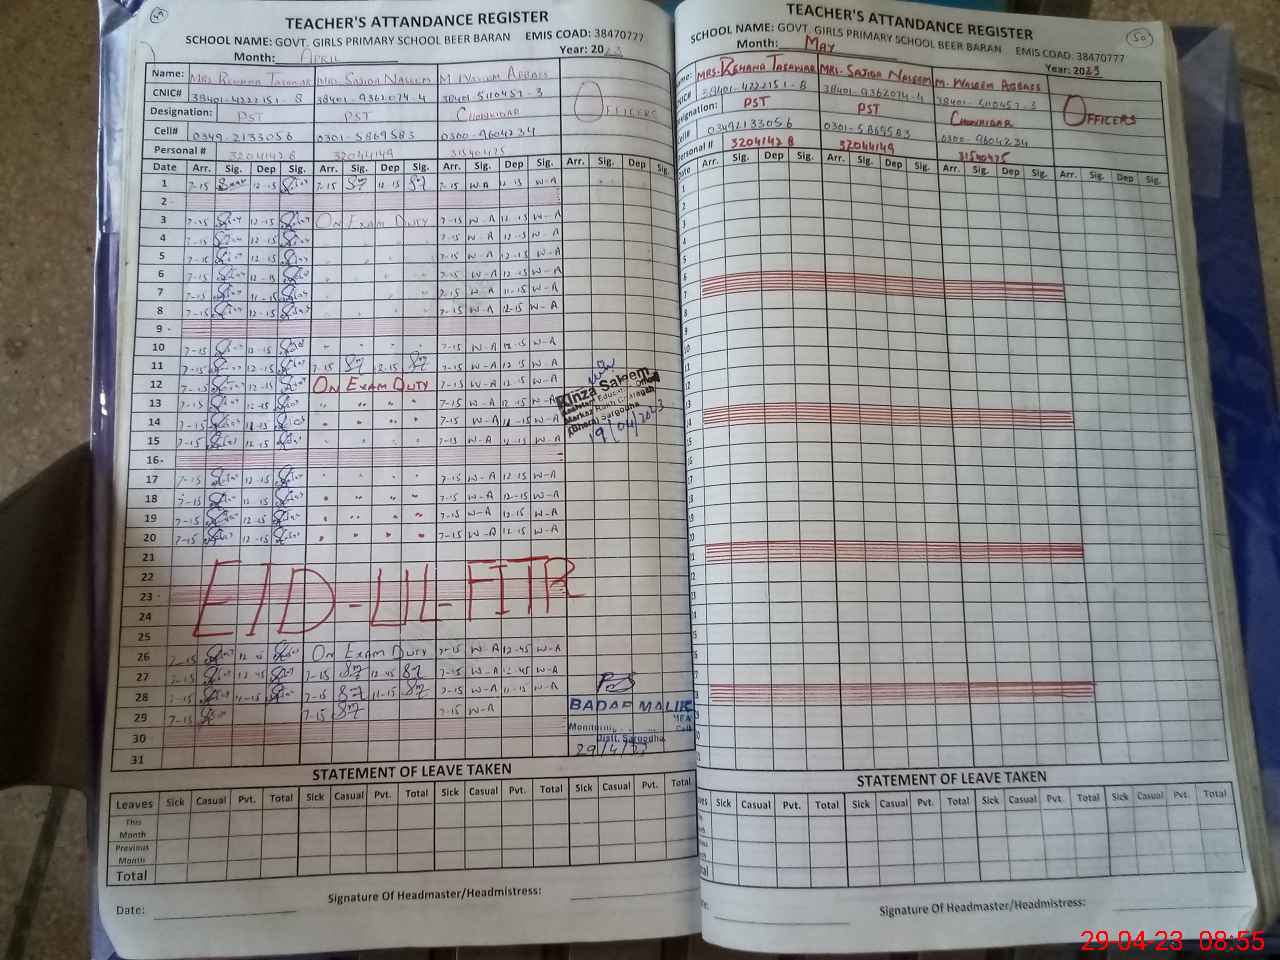 49
TEACHER'S ATTANDANCE REGISTER
SCHOOL NAME: GOVT. GIRLS PRIMARY SCHOOL BEER BARAN EMIS COAD: 38470777
Month: APRIL Year: 2023
Name: MRS. REHANA TASAWAR MRS. SAJIDA NASEEM M. WASEEM ABBASS
CNIC# 38401-4222151-8 38401-9362074-4 38401-5110457-3 OFFICERS
Designation: PST PST CHOWKIDAR
Cell# 0349-2133056 0301-5869583 0300-9604234
Personal # 32041428 32044149 31540475
Date Arr. Sig. Dep Sig. Arr. Sig. Dep Sig. Arr. Sig. Dep Sig. Arr. Sig. Dep Sig.
1 7-15 12-15 7-15 12-15 7-15 W-A 12-15 W-A
2
3 7-15 12-15 ON EXAM DUTY 7-15 W-A 12-15 W-A
4 7-15 12-15 7-15 W-A 12-15 W-A
5 7-15 12-15 7-15 W-A 12-15 W-A
6 7-15 12-15 7-15 W-A 12-15 W-A
7 7-15 11-15 7-15 W-A 11-15 W-A
8 7-15 12-15 7-15 W-A 12-15 W-A
9
10 7-15 12-15 7-15 W-A 12-15 W-A
11 7-15 12-15 7-15 12-15 7-15 W-A 12-15 W-A
12 7-15 12-15 ON EXAM DUTY 7-15 W-A 12-15 W-A
13 7-15 12-15 7-15 W-A 12-15 W-A
14 7-15 7-15 W-A W-A
15 7-15 7-15 W-A W-A
16
17 7-15 12-15 7-15 W-A 12-15 W-A
18 7-15 12-15 7-15 W-A 12-15 W-A
19 7-15 12-15 7-15 W-A 12-15 W-A
20 7-15 12-15 7-15 W-A 12-15 W-A
21
22
EID-UL-FITR
23
24
25
26 7-15 12-45 ON EXAM DUTY 7-15 W-A 12-45 W-A
27 7-15 12-45 7-15 12-45 7-15 W-A 12-45 W-A
28 7-15 11-15 7-15 11-15 7-15 W-A 11-15 W-A
29 7-15 7-15 7-15 W-A
30
31
Kinza Saleem
(Bhera) Sargodha
19/04/2023
BADAR MALIK
Distt. Sargodha
29/4/23
STATEMENT OF LEAVE TAKEN
Leaves Sick Casual Pvt. Total Sick Casual Pvt. Total Sick Casual Pvt. Total Sick Casual Pvt. Total
This Month
Previous Month
Total
Signature Of Headmaster/Headmistress:
Date:
50
TEACHER'S ATTANDANCE REGISTER
SCHOOL NAME: GOVT. GIRLS PRIMARY SCHOOL BEER BARAN EMIS COAD: 38470777
Month: MAY Year: 2023
MRS. REHANA TASAWAR MRS. SAJIDA NASEEM M. WASEEM ABBASS
CNIC# 38401-4222151-8 38401-9362074-4 38401-5110457-3 OFFICERS
Designation: PST PST CHOWKIDAR
Cell# 03492133056 0301-5869583 0300-9604234
Personal # 32041428 32044149 31540475
Date Arr. Sig. Dep Sig. Arr. Sig. Dep Sig. Arr. Sig. Dep Sig. Arr. Sig. Dep Sig.
1
2
3
4
5
6
7
8
9
10
11
12
13
14
15
16
17
18
19
20
21
22
23
24
25
26
27
STATEMENT OF LEAVE TAKEN
Sick Casual Pvt. Total Sick Casual Pvt. Total Sick Casual Pvt. Total Sick Casual Pvt. Total
Signature Of Headmaster/Headmistress:
29-04-23 08:55